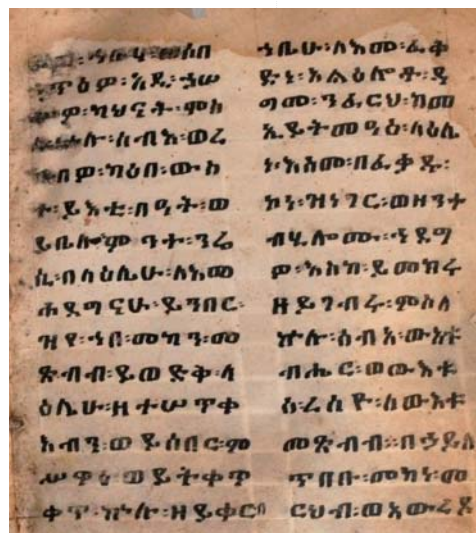 ወሰበ
ም፡ካህናት፡ምስ
ኵሉ፡ሰብእ፡ወረ
ካዕበ፡ውስ
ተ፡ይእቲ፡በዓት፡ወ
ይቤሎም ንተ፡ንሬ
ሲ፡በላዕሌሁ፡ለእመ
ሐደግናሁ፡ይንበር፡
ዝየ፡ኀበ፡መካን፡መ
ጽብብ፡ይወድቅ፡ላ
ዕሌሁ፡ዘተሠጥቀ
እብን፡ወይሰበር፡ም
ሥዋዕ፡ወይትቀጥ
ቀጥ፡ኵሉ፡ዘይቀርበ
ኀቤሁ፡ለእመ፡ፈቀ
ድነ፡አልዕሎቶ፡ዳ
ግመ፡ንፈርህ፡ከመ
ኢይትመዓዕ፡ላዕሌ
ነ፡እስመ፡በፈቃዱ፡
ኮነ፡ዝነገር፡ወዘንተ
ብሂሎሙ፡ኀደግ
ዎ፡እስከ፡ይመክሩ
ዘይገብሩ፡ምስለ
ኵሉ፡ሰብእ፡ውእቱ
ብሔር፡ወውእቱ
ዕረስዮ፡ለውእቱ
መጽብብ፡በኃይለ
ጥበቡ፡መካነ፡መ
ርህብ፡ወአውረደ